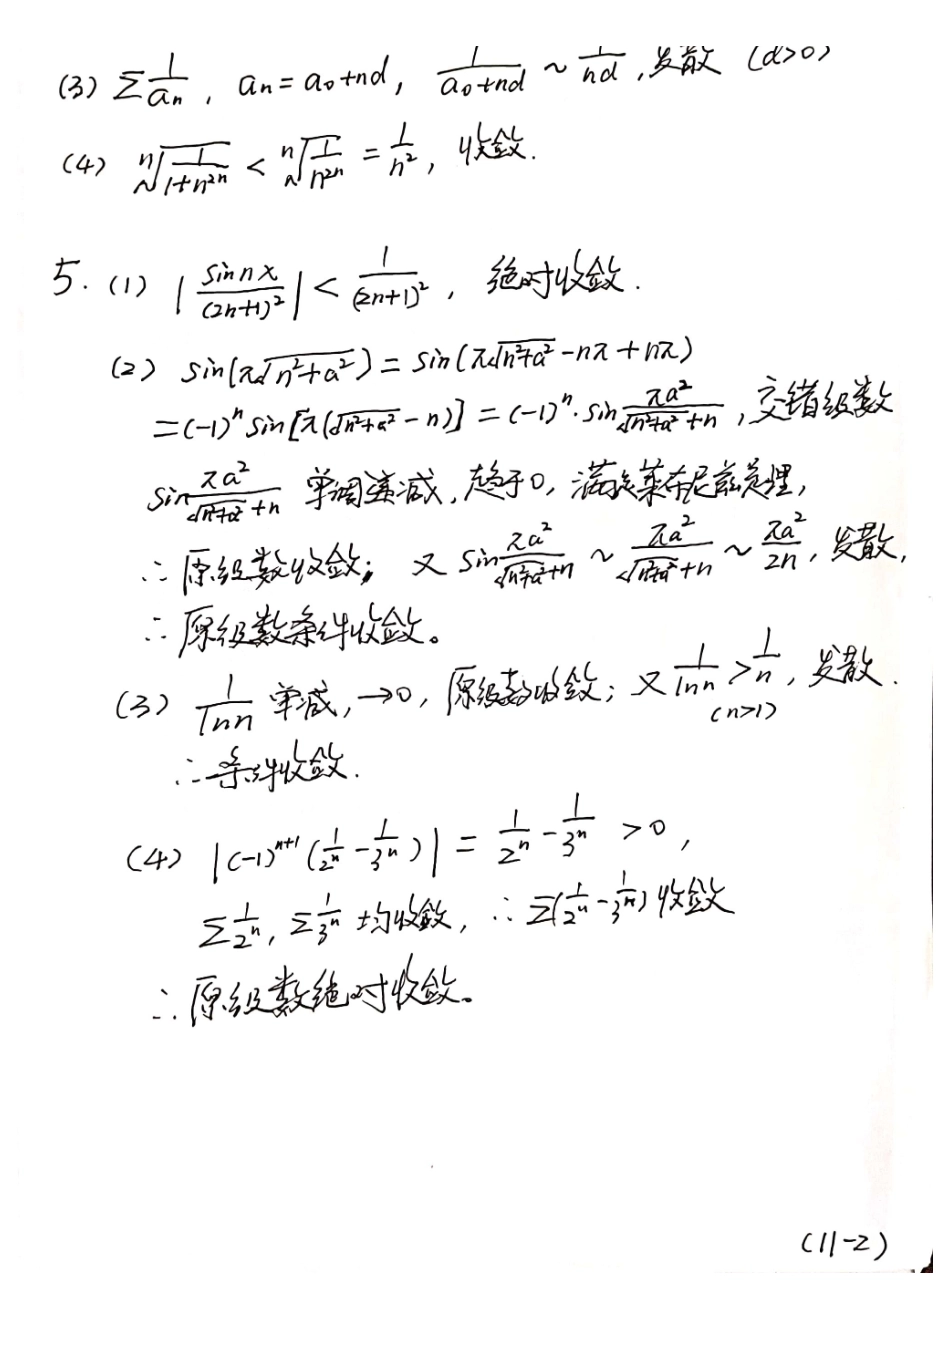 (3) Σ 1/aₙ , aₙ = a₀+nd, 1/(a₀+nd) ~ 1/(nd) ,发散 (d>0)
(4) ⁿ√(1/(1+n²ⁿ)) < ⁿ√(1/n²ⁿ) = 1/n² , 收敛.
5. (1) | sin nx/(2n+1)² | < 1/(2n+1)² , 绝对收敛.
(2) sin(π√(n²+a²)) = sin(π√(n²+a²) -nπ+nπ)
=(-1)ⁿ sin[π(√(n²+a²) -n)] = (-1)ⁿ·sin πa²/(√(n²+a²)+n) ,交错级数
sin πa²/(√(n²+a²)+n) 单调递减,趋于0,满足莱布尼兹定理,
∴原级数收敛; 又 sin πa²/(√(n²+a²)+n) ~ πa²/(√(n²+a²)+n) ~ πa²/2n ,发散,
∴原级数条件收敛。
(3) 1/lnn 单减,→0, 原级数收敛; 又 1/lnn > 1/n , 发散.
(n>1)
∴条件收敛.
(4) |(-1)ⁿ⁺¹(1/2ⁿ - 1/3ⁿ)| = 1/2ⁿ - 1/3ⁿ >0 ,
Σ 1/2ⁿ , Σ 1/3ⁿ 均收敛, ∴Σ(1/2ⁿ - 1/3ⁿ) 收敛
∴原级数绝对收敛。
(11-2)